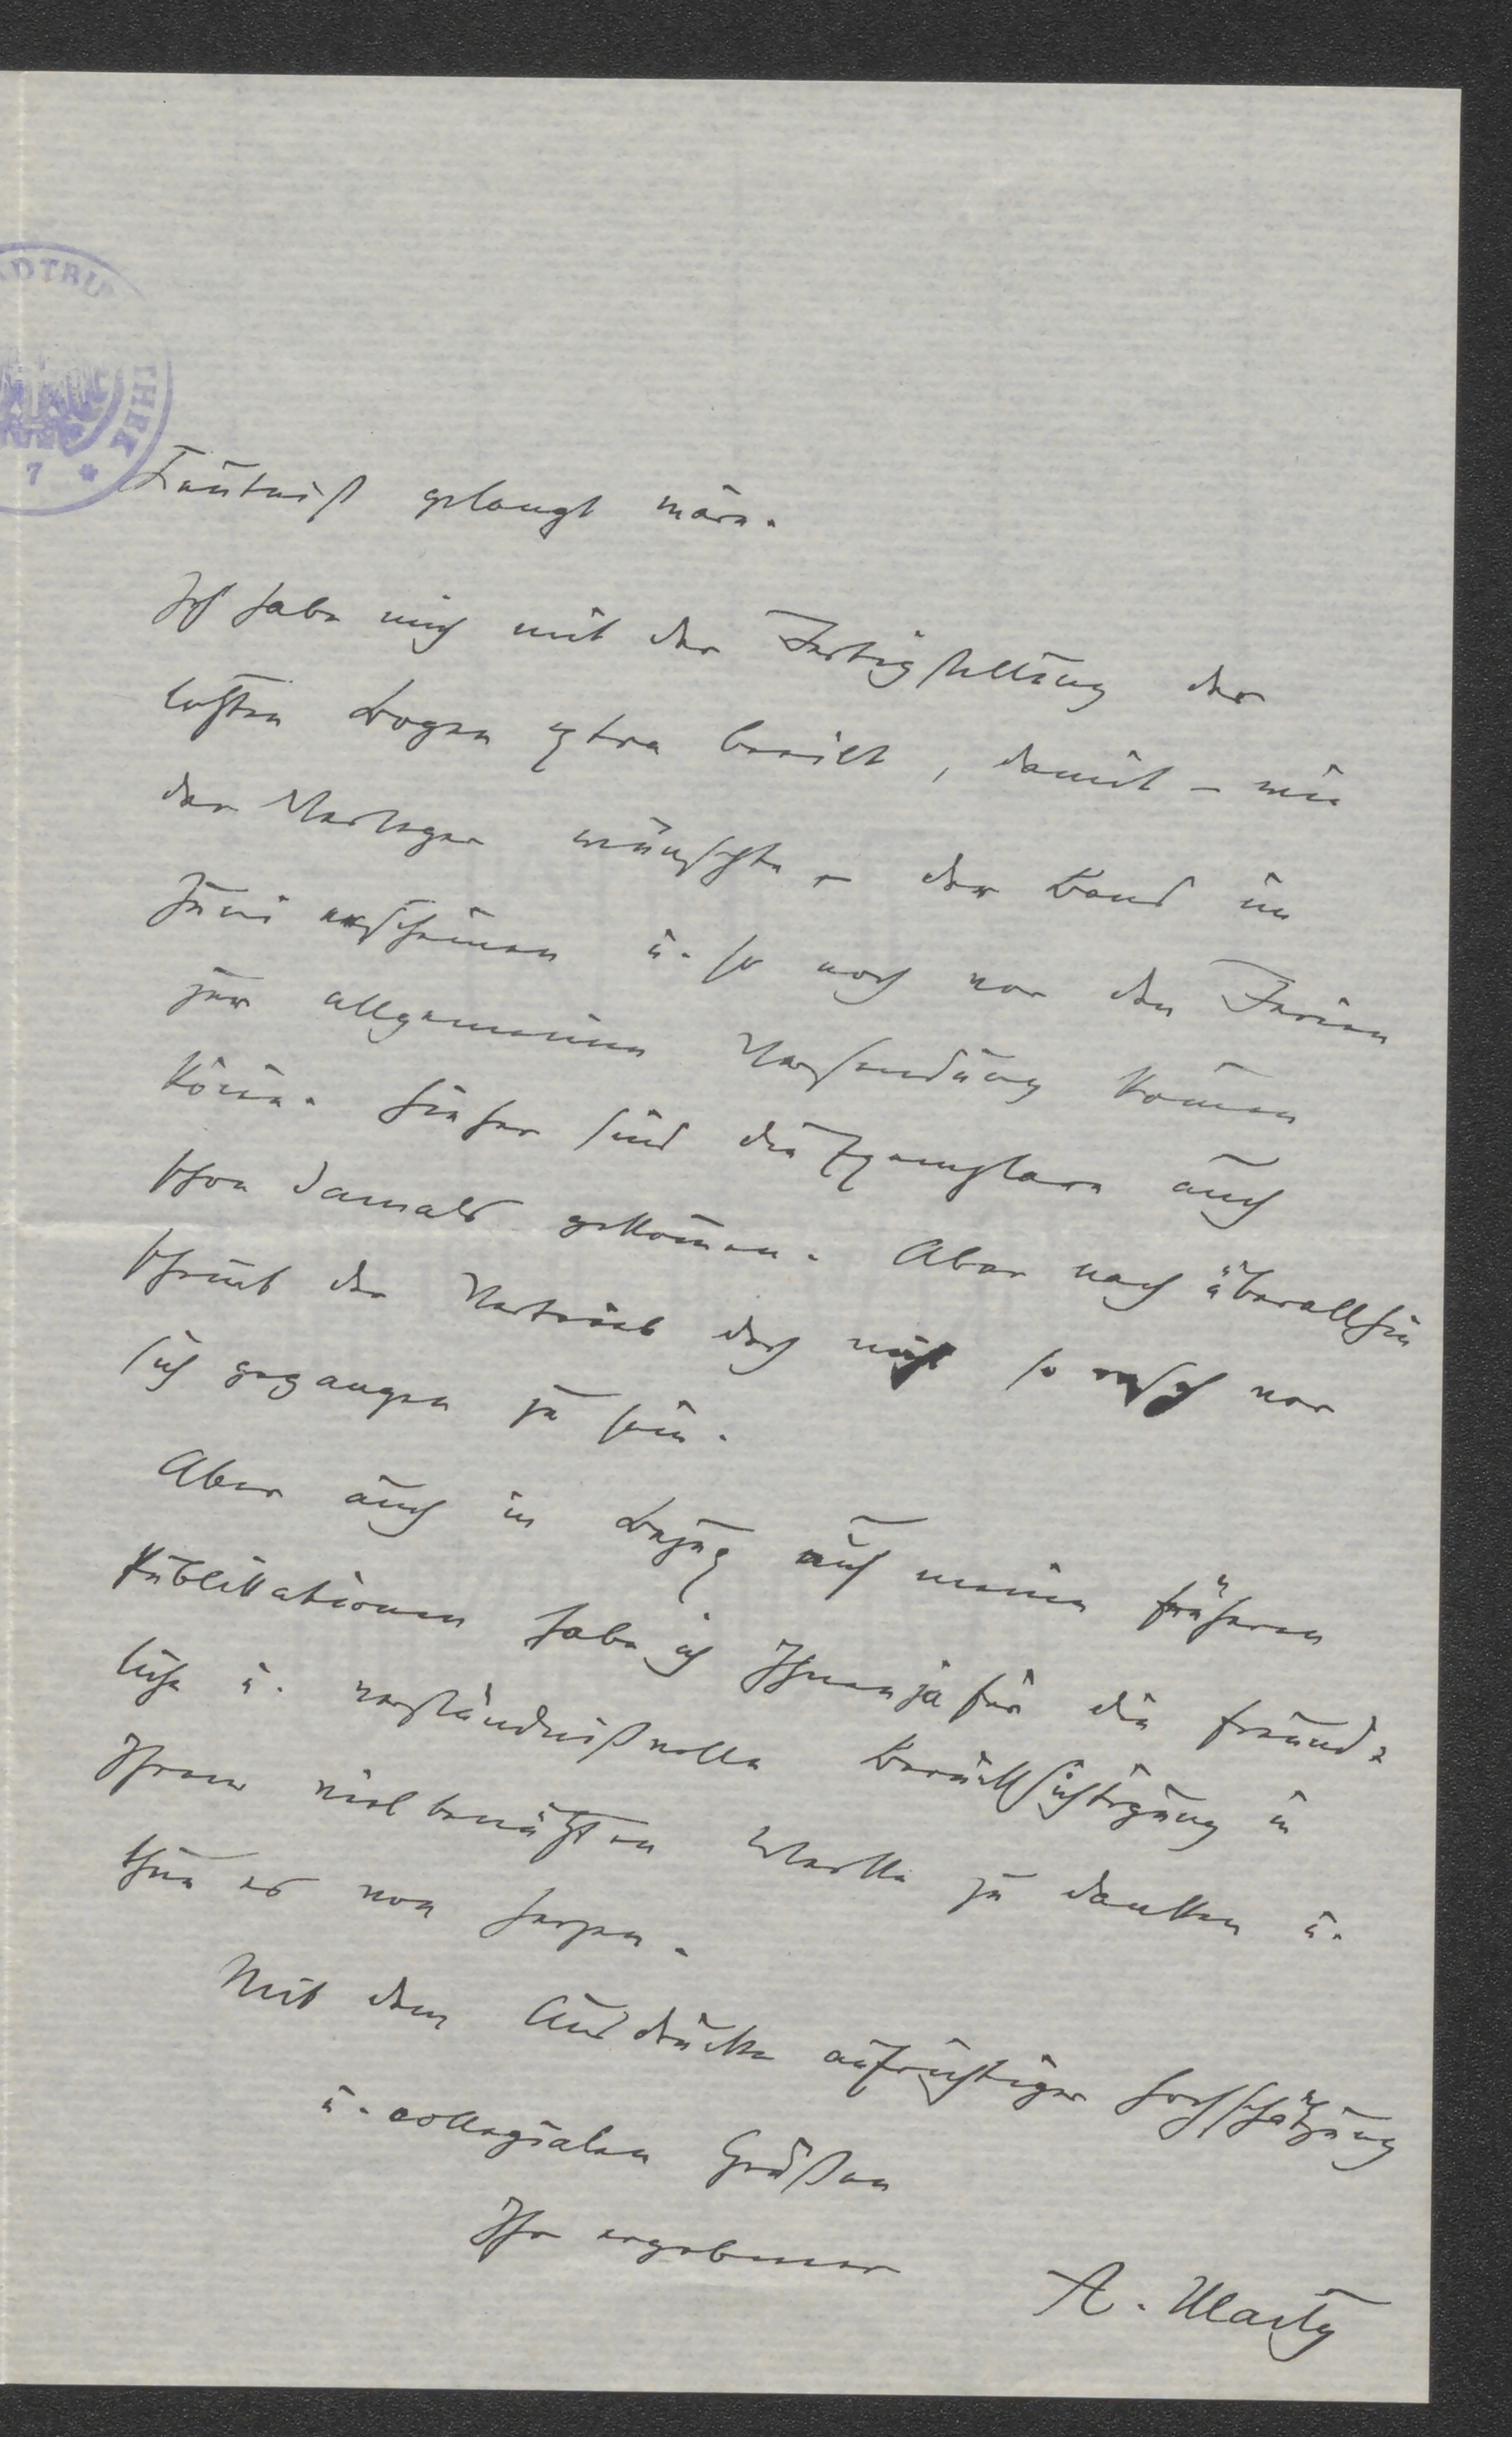 ADTBU
THEK
7 *
Kenntniß gelangt wäre.
Ich habe mich mit der Fertigstellung der
letzten Bogen extra beeilt, damit – wie
der Verleger wünschte – der Band im
Juni erscheinen u. so noch vor den Ferien
zur allgemeinen Versendung kommen
könne. Hieher sind die Exemplare auch
schon damals gekommen. Aber nach überallhin
scheint der Vertrieb doch nicht so rasch vor
sich gegangen zu sein.
Aber auch in Bezug auf meine früheren
Publikationen habe ich Ihnen ja für die freund=
liche u. verständnißvolle Berücksichtigung in
Ihrem vielbenützten Werke zu danken u.
thue es von Herzen.
Mit dem Ausdrucke aufrichtiger Hochschätzung
u. collegialen Grüßen
Ihr ergebener
A. Marty